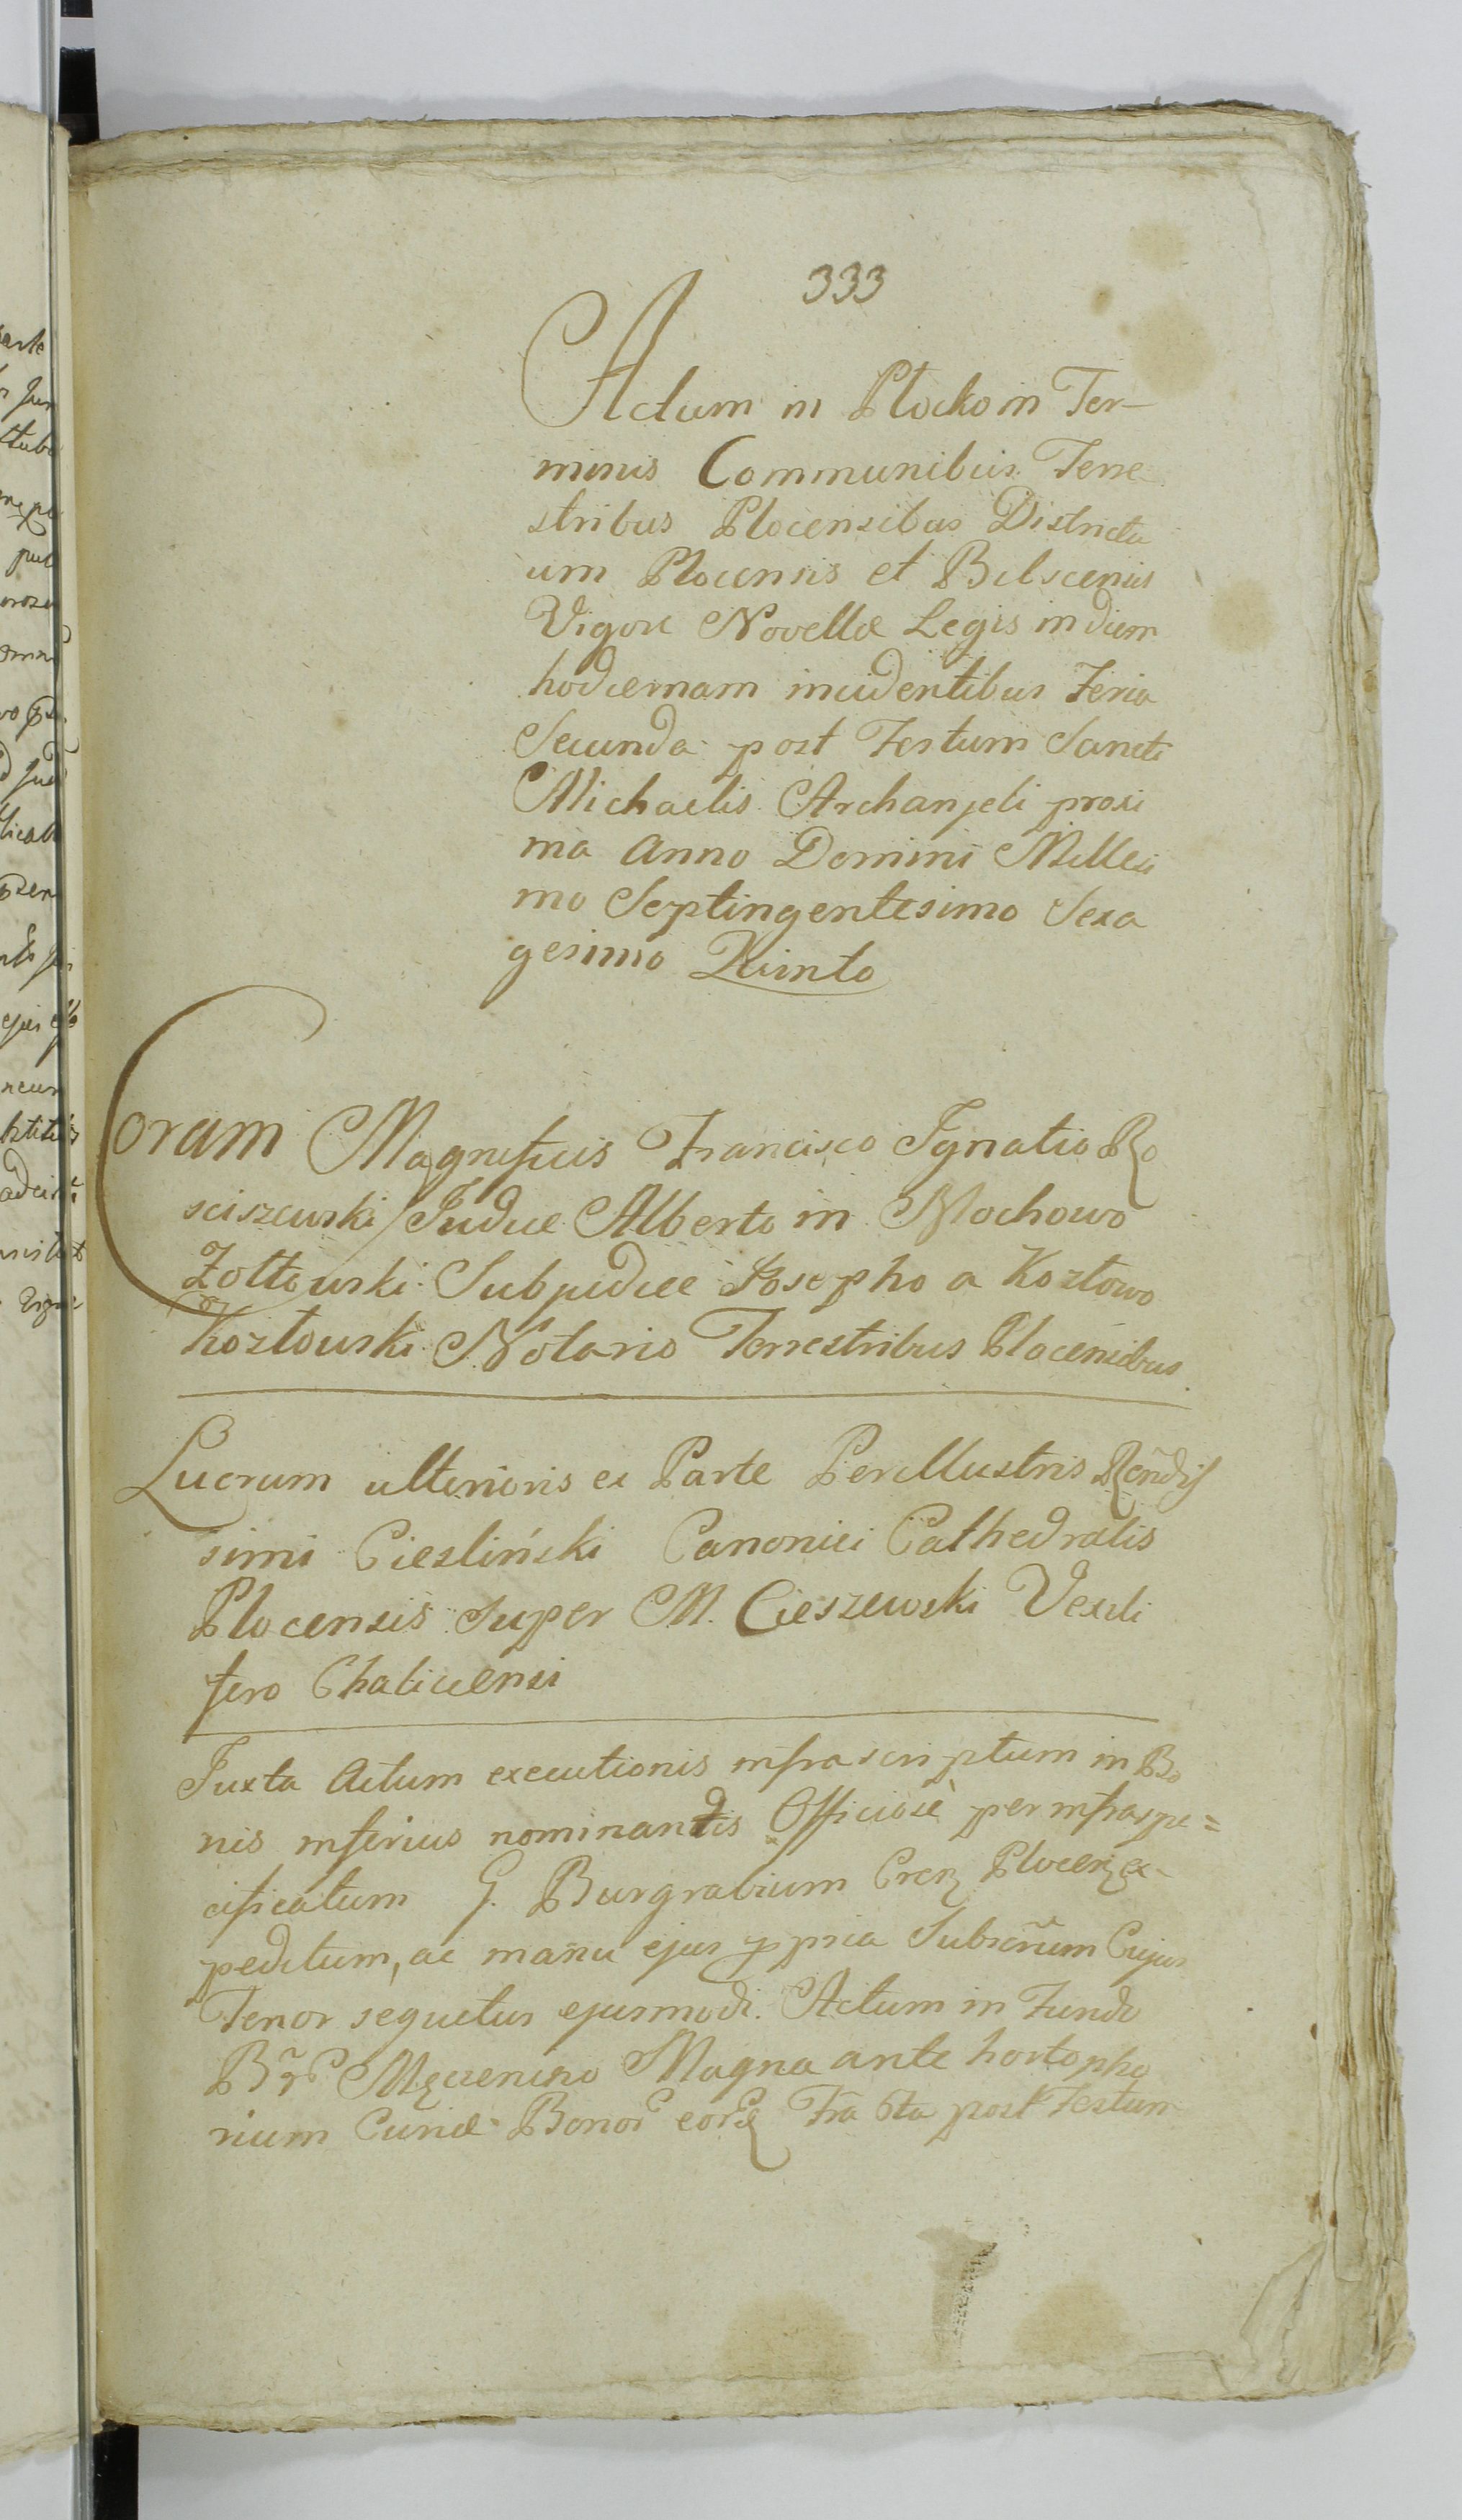 333
Actum in Płocko in Ter-
minis Communibus Terre
stribus Plocensibus Districtu
um Plocensis et Bielscensis
Vigore Novellæ Legis in diem
hodiernam incidentibus Feria
Secunda post Festum Sancti
Michaelis Archangeli proxi
ma Anno Domini Millesi
mo Septingentesimo Sexa
gesimo Quinto
Coram Magnificis Francisco Ignatio Ro
sciszewski Judice Alberto in Mochowo
Zołtowski Subjudice Josepho a Kozłowo
Kozłowski Notario Terrestribus Plocensibus.
Lucrum ulterioris ex Parte Perillustris Rndis
simi Ciesliński Canonici Cathedralis
Plocensis super M. Cieszewski Vexili
fero Chalicensi
Juxta Actum executionis infrascriptum in Bo
nis inferius nominandis Officiose per infraspe=
cificatum G. Burgrabium Plocen ex-
peditum, ac manu ejus ppria Subscrium Cujus
Tenor sequitur ejusmodi. Actum in Fundo
Magna ante hortopho
rium Curiæ Bonor eor Fra 6ta post Festum
arte